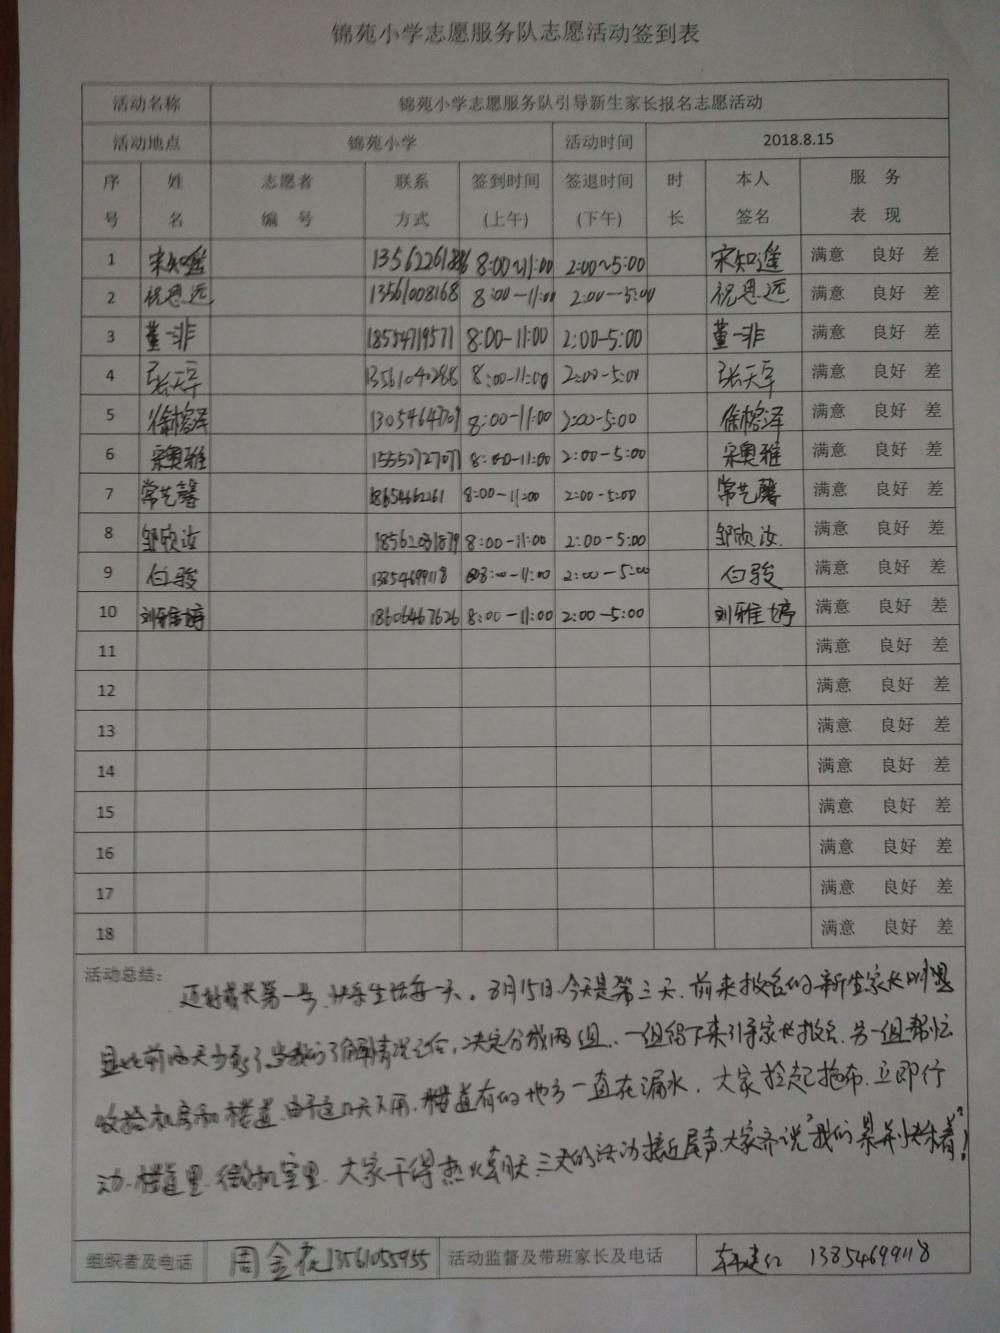 锦苑小学志愿服务队志愿活动签到表
活动名称 锦苑小学志愿服务队引导新生家长报名志愿活动
活动地点 锦苑小学 活动时间 2018.8.15
序 姓 志愿者 联系 签到时间 签退时间 时 本人 服 务
号 名 编 号 方式 (上午) (下午) 长 签名 表 现
1 宋知遥 8:00~11:00 2:00~5:00 宋知遥 满意 良好 差
2 祝恩远 13561008168 8:00-11:00 2:00-5:00 祝恩远 满意 良好 差
3 董一非 18554719571 8:00-11:00 2:00-5:00 董一非 满意 良好 差
4 张天宇 13561040288 8:00-11:00 2:00-5:00 张天宇 满意 良好 差
5 徐榕泽 13054647709 8:00-11:00 2:00-5:00 徐榕泽 满意 良好 差
6 宋奥雅 15552727077 8:00-11:00 2:00-5:00 宋奥雅 满意 良好 差
7 常艺馨 8:00-11:00 2:00-5:00 常艺馨 满意 良好 差
8 邹欣汝 8:00-11:00 2:00-5:00 邹欣汝 满意 良好 差
9 白骏 13854699118 8:00-11:00 2:00-5:00 白骏 满意 良好 差
10 刘雅婷 18606467626 8:00-11:00 2:00-5:00 刘雅婷 满意 良好 差
11 满意 良好 差
12 满意 良好 差
13 满意 良好 差
14 满意 良好 差
15 满意 良好 差
16 满意 良好 差
17 满意 良好 差
18 满意 良好 差
活动总结:
第一号,快乐生活每一天。8月15日,今天是第三天,前来报名的新生家长明显
比前两天少多了。当我们了解情况之后,决定分成两组,一组留下来引导家长报名,另一组帮忙
收拾机房和楼道,由于这几天下雨,楼道有的地方一直在漏水,大家拎起拖布,立即行
动,楼道里,微机室里,大家干得热火朝天,三天的活动接近尾声,大家齐说“我们累并快乐着”!
组织者及电话 周金花13561055955 活动监督及带班家长及电话 韩建红 13854699118